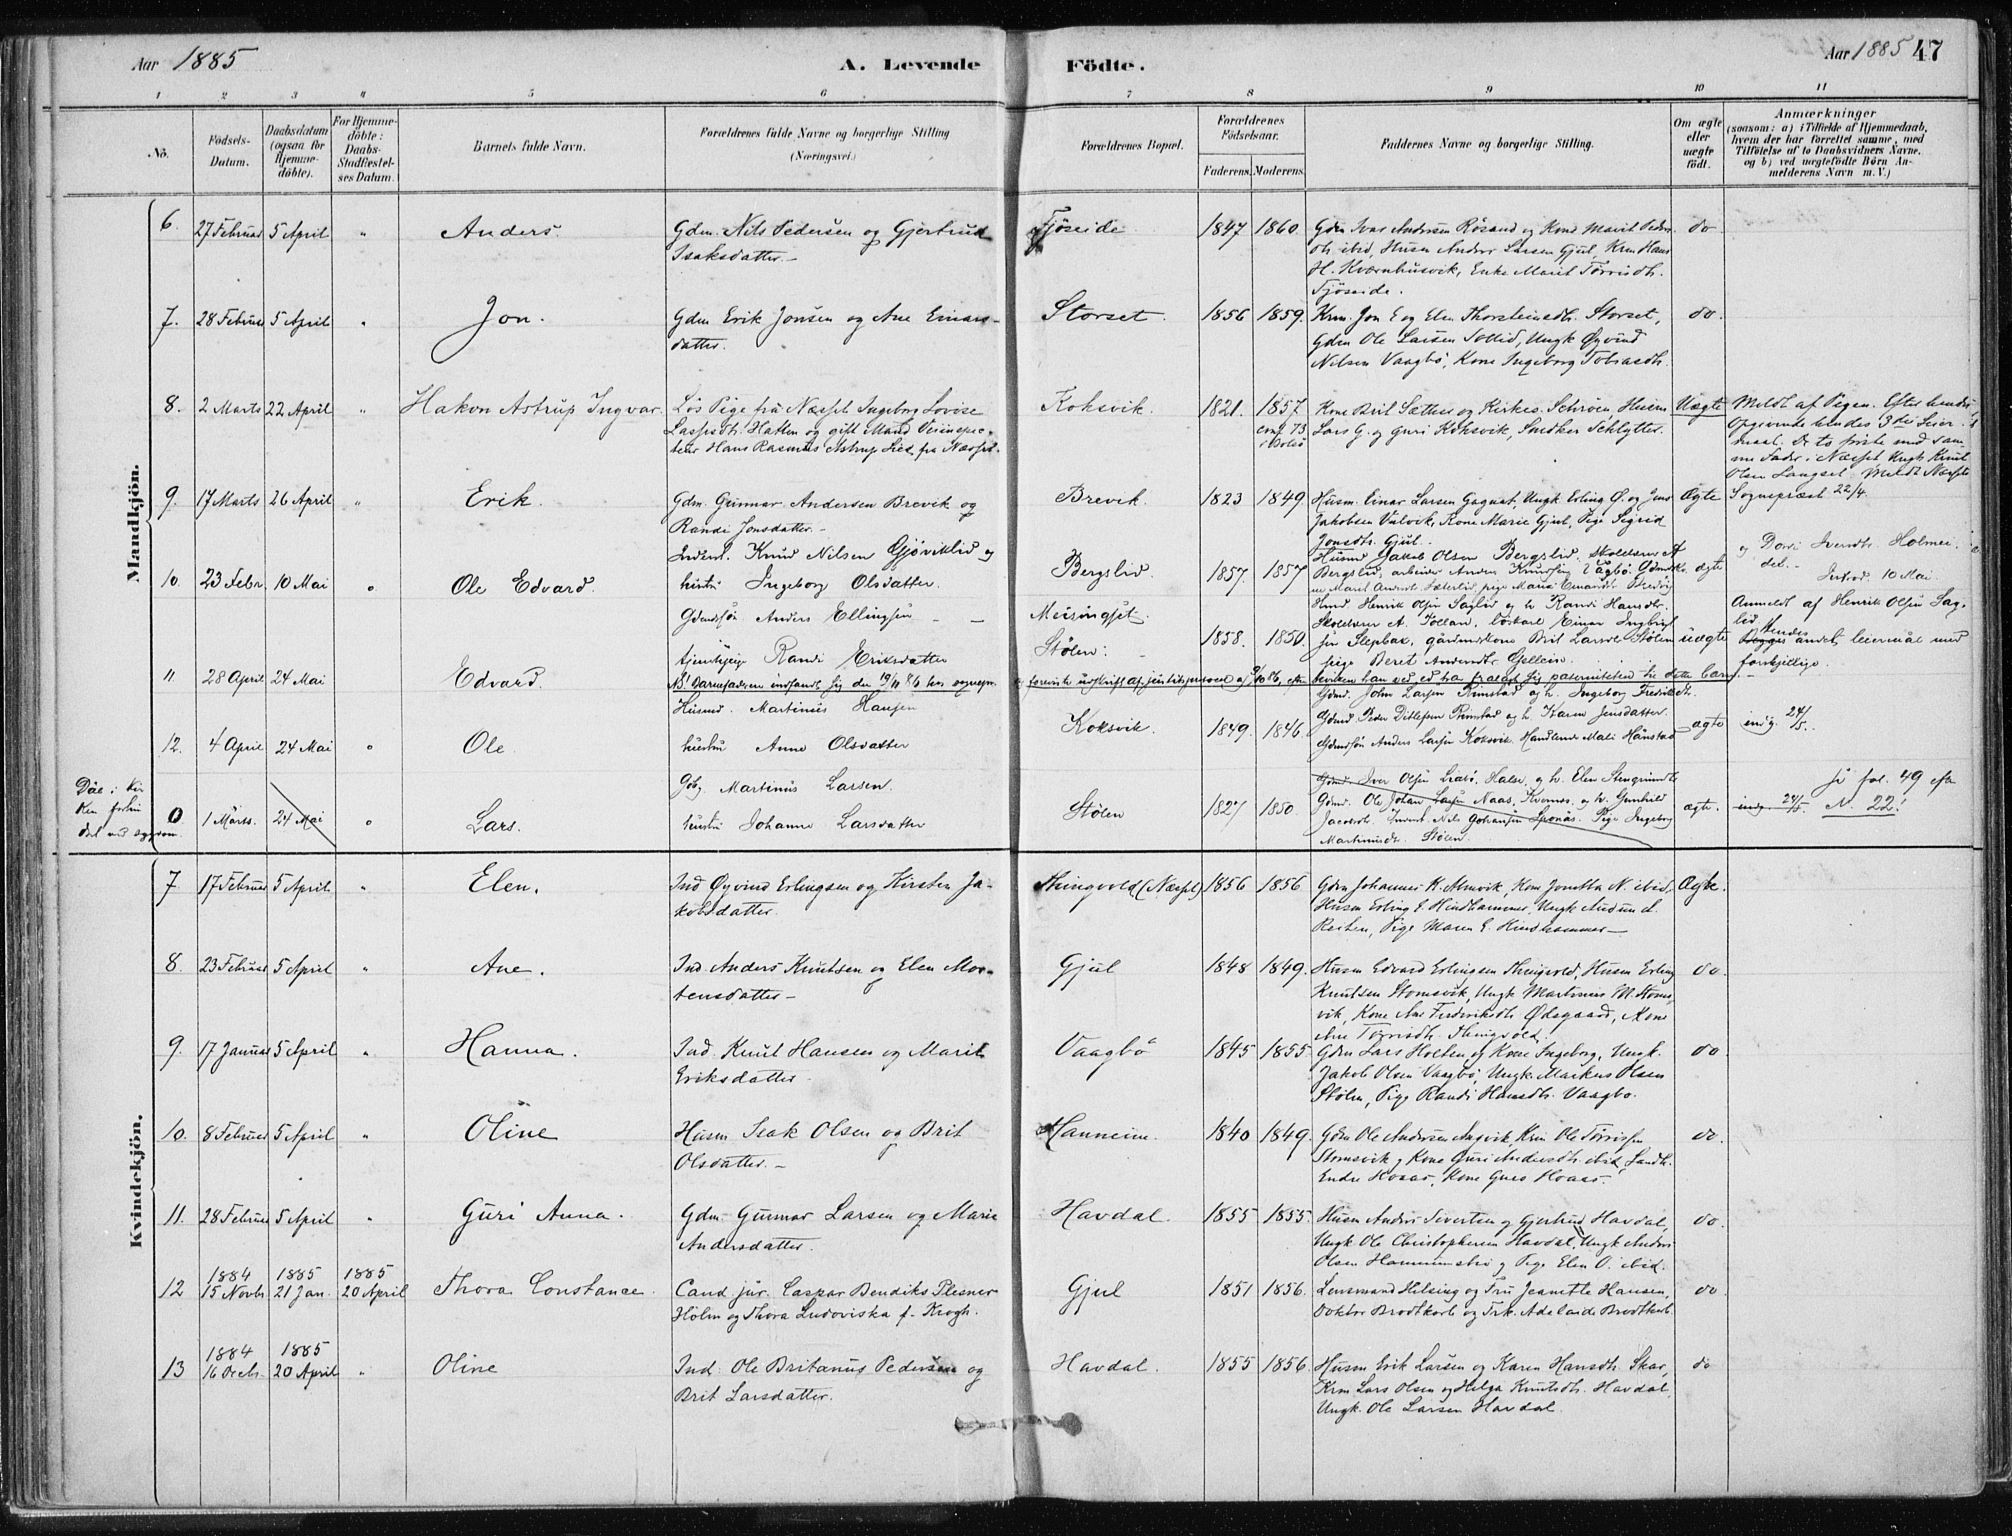 Aar 1885
A. Levende
Födte.
Aar 1885 47
1 2 3 4 5 6 7 8 9 10 11
No.
Födsels-
Datum.
Daabsdatum
(ogsaa for
Hjemme-
döbte).
For Hjemme-
döbte:
Daabs-
Stadfæstel-
ses Datum.
Barnets fulde Navn.
Forældrenes fulde Navne og borgerlige Stilling
(Næringsvei.)
Forældrenes Bopæl.
Forældrenes
Födselsaar.
Faderens. Moderens.
Faddernes Navne og borgerlige Stilling.
Om ægte
eller
uægte
födt.
Anmærkninger
(saasom: a) i Tilfælde af Hjemmedaab,
hvem der har forrettet samme, med
Tilföielse af to Daabsvidners Navne,
og b) ved uægtefödte Börn An-
melderens Navn m. V.)
Mandkjön.
6. 27 Februar 5 April " Anders. Gdm. Nils Pedersen og Gjertrud
Isaksdatter.—
Tjöseide 1847 1860 Gdm Ivar Andersen Rösand og Kone Marit Peders-
dtr. ibid, Husm Anders Larsen Gjul, Krm Hans
H. Kvernhusvik, Enke Marit Tørrisdtr.
Tjöseide.
do
7. 28 Februar 5 April " Jon. Gdm Erik Jonsen og Ane Einars-
datter.
Storset. 1856 1859. Krm. Jon E og Elen Thorsteinsdtr. Storset,
Gdm Ole Larsen Sollid, Ungk Øyvind
Nilsen Vaagbö, Kone Ingeborg Tobiasdtr.
do.
8. 2 Marts 22 April " Hakon Astrup Ingvar. Lös Pige fra Næsset Ingeborg Lovise
Lassesdtr. Hatten og gift Mand Veiinspec-
teur Hans Rasmus Astrup Lied fra Næsset.
Koksvik. 1821. 1857
conf 73
i Bolsö
Kone Brit Sæther og Kirkes. Schröen, Husm
Lars G. og Guri Koksvik, Snedker Schlytter.
Uægte
Meldt af Pigen. Efter hendes
Opgivende hendes 3die Leier-
maal. De to förste med sam-
me Fader i Næsset Ungk Knut
Olsen Langset. Meldt Næssets
Sognepræst 22/4.
9. 17 Marts 26 April " Erik. Gdm. Gunnar Andersen Brevik og
Randi Jonsdatter.—
Brevik 1823 1849. Husm. Einar Larsen Gagnat, Ungk Erling Ø. og Jens
Jakobsen Vulvik, Kone Marie Gjul, Pige Sigrid
Jonsdtr. Gjul.
Ægte
10. 23 Febr. 10 Mai " Ole Edvard. Inderst. Knud Nilsen Gjöviklid og
hustru Ingeborg Olsdatter.
Bergslid. 1857. 1857 Husmd Jakob Olsen Bergslid, Skolelærer A
Bergslid, arbeider Anders Knudsen Vågbö,
ægte
Indfört 10 Mai.
11 28 April 24 Mai Edvard. Gdmdsön Anders Ellingsen — —
tjenestepige Randi Eriksdatter
Meisingset.
Stölen. 1858. 1850. Husmd Henrik Olsen Saglid og h. Randi Hansdtr.
Skolelærer A. Folland, löskarl Einar Ingebrigt-
sen Slepbak, gårdmdskone Brit Larsdtr Stölen
pige Beret Andersdtr. Gellein.
uægte
Anmeldt af Henrik Olsen Sag-
lid
Hendes andet leiermål med
forskjellige.
NB! Barnefaderen indfandt sig den 19/11 86 hos sognepr.
12. 4 April 24 Mai " Ole. Husmd. Martinus Hansen
hustru Anne Olsdatter
Koksvik. 1849. 1846. Gdmd. John Larsen Rimstad og h. Ingeborg Fredriksdtr.
Gdmd Peder Ditlefsen Rimstad og h. Karen Jensdatter
Gdmdsön Anders Larsen Koksvik. Handlende Mali Hånstad
ægte indg. 24/5.
0 1 Marts. 24 Mai " Lars. Gbrg Martinus Larsen.
hustru Johanne Larsdatter
Stölen 1827 1850. Gdmd. Iver Olsen Liasö, Halse, og h. Elen Stengrundt.
Gdmd. Ole Johan Larsen Naas, Kvernes, og h. Gunhild
Jacobsdtr. Inderst. Nils Johansen Sponås. Pige Ingeborg
Martinusdtr. Stölen
ægte. indg. 24/5
Se fol. 49 efter
N. 22!
Kvindekjön.
7 17 Februar 5 April. " Elen. Ind Øyvind Erlingsen og Kirsten Ja-
kobsdatter.
Thingvold (Næsset) 1856 1856 Gdm Johannes K. Almvik, Kone Jonetta N. ibid,
Husm Erling E. Hindhammer, Ungk Audun L.
Resten, Pige Maren E. Hindhammer—
Ægte.
8. 23 Februar 5 April " Ane. Ind. Anders Knutsen og Elen Mor-
tensdatter—
Gjul 1848 1849. Husm Edvard Erlingsen Thingvold, Husm Erling
Knutsen Stomsvik, Ungk Martinus M. Stoms-
vik, Kone Ane Frederiksdtr Ødegaard, Kone
Ane Tørrisdtr. Thingvold.
do.
9. 17 Januar 5 April " Hanna. Ind. Knut Hansen og Marit
Eriksdatter.
Vaagbö 1845 1855 Gdm Lars Holten og Kone Ingeborg, Ungk.
Jakob Olsen Vaagbö, Ungk Markus Olsen
Stölen, Pige Randi Hansdtr. Vaagbö.
do
10. 8 Februar 5 April " Oline Husm Isak Olsen og Brit
Olsdatter.—
Hanneim. 1840 1849. Gdm Ole Andersen Angvik, Krm Ole Tørrissen
Stomsvik og Kone Guri Andersdtr. ibid, Landh.
Endre Hoaas, Kone Guro Hoaas.
do.
11. 28 Februar 5 April " Guri Anna. Gdm. Gunnar Larsen og Marie
Andersdatter.
Havdal. 1855 1855. Husm Anders Sivertsen og Gjertrud Havdal,
Ungk Ole Christophersen Havdal, Ungk Anders
Olsen Hammersbö og Pige Elen O. ibid.
do.
12 1884
15 Novbr 1885
21 Jan. 1885
20 April Thora Constance. Cand. jur. Caspar Bendiks Plesner
Holm og Thora Ludoviska f. Krogh.
Gjul 1851 1856. Lensmand Helsing og Fru Jeanette Hansen,
Doktor Brodtkorb og Frk. Adelaide Brodtkorb
do
13 1884
16 Decbr. 1885
20 April " Oline Ind. Ole Britanus Pedersen og
Brit Larsdatter.
Havdal. 1855 1856. Husm Erik Larsen og Karen Hansdtr. Skar,
Krm Lars Olsen og Helga Knutsdtr. Havdal,
Ungk. Ole Larsen Havdal.
do